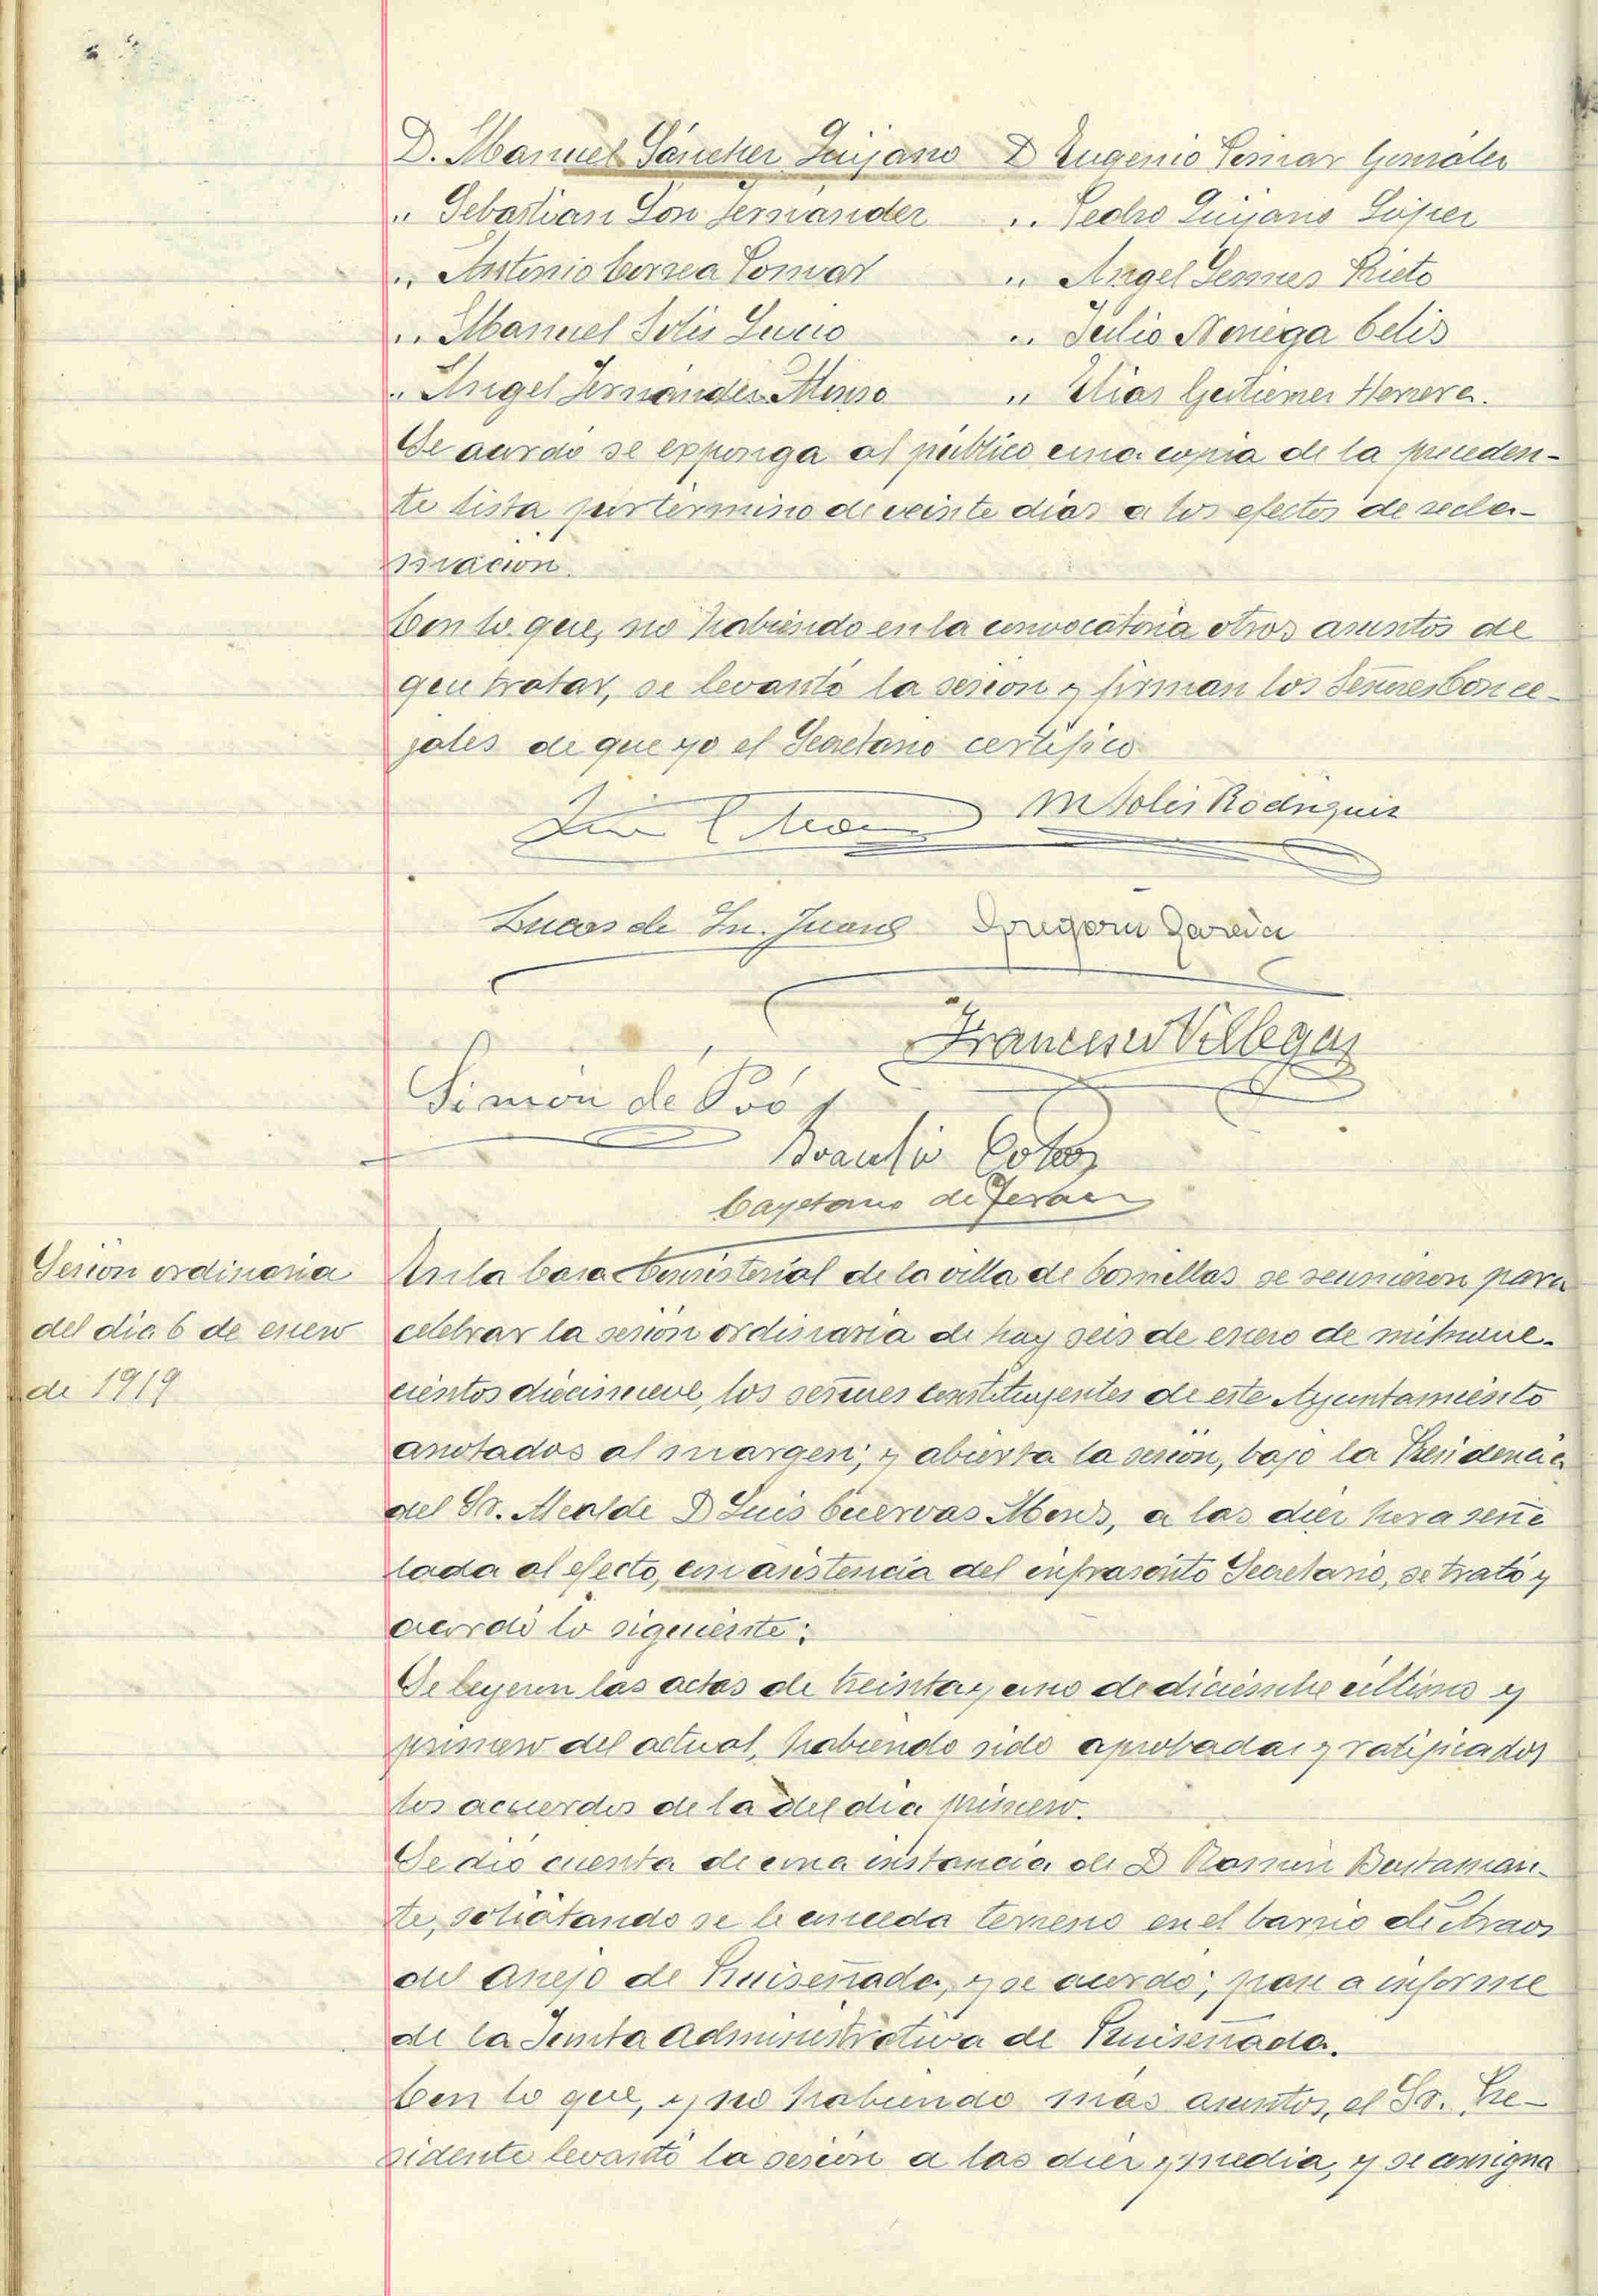 D. Manuel Sánchez Quijano D Eugenio Pomar González
„ Sebastian Son Fernández „ Pedro Quijano López
„ Antonio Correa Pomar „ Angel Prieto
„ Manuel Solis Lucio „ Julio Noriega Celis
„ Angel Fernández Alonso „ Elias Gutierrez Herrera.
Se acordó se exponga al público una copia de la preceden-
te lista por término de veinte días a los efectos de recla-
mación.
Con lo que, no habiendo en la convocatoria otros asuntos de
que tratar, se levantó la sesión y firman los Señores Conce-
jales de que yo el Secretario certifico.
M Solis Rodriguez
Lucas de Sn. Juan Gregorio Garcia
Francisco Villegas
Simón de Poó
Braulio Cobo
Cayetano de Teran
Sesión ordinaria
del dia 6 de enero
de 1919
En la Casa Consistorial de la villa de Comillas se reunieron para
celebrar la sesión ordinaria de hoy seis de enero de mil nove-
cientos diecinueve, los señores constituyentes de este Ayuntamiento
anotados al margen; y abierta la sesión, bajo la Presidencia
del Sr. Alcalde D Luis Cuervas Mons, a las diez hora seña
lada al efecto, con asistencia del infrascrito Secretario, se trató y
acordó lo siguiente:
Se leyeron las actas de treinta y uno de diciembre último y
primero del actual, habiendo sido aprobadas y ratificados
los acuerdos de la del dia primero.
Se dió cuenta de una instancia de D Ramón Bustaman-
te, solicitando se le conceda terreno en el barrio de Araos
del anejo de Ruiseñada, y se acordó; pase a informe
de la Junta administrativa de Ruiseñada.
Con lo que, y no habiendo más asuntos, el Sr. Pre-
sidente levantó la sesión a las diez y media, y se consigna